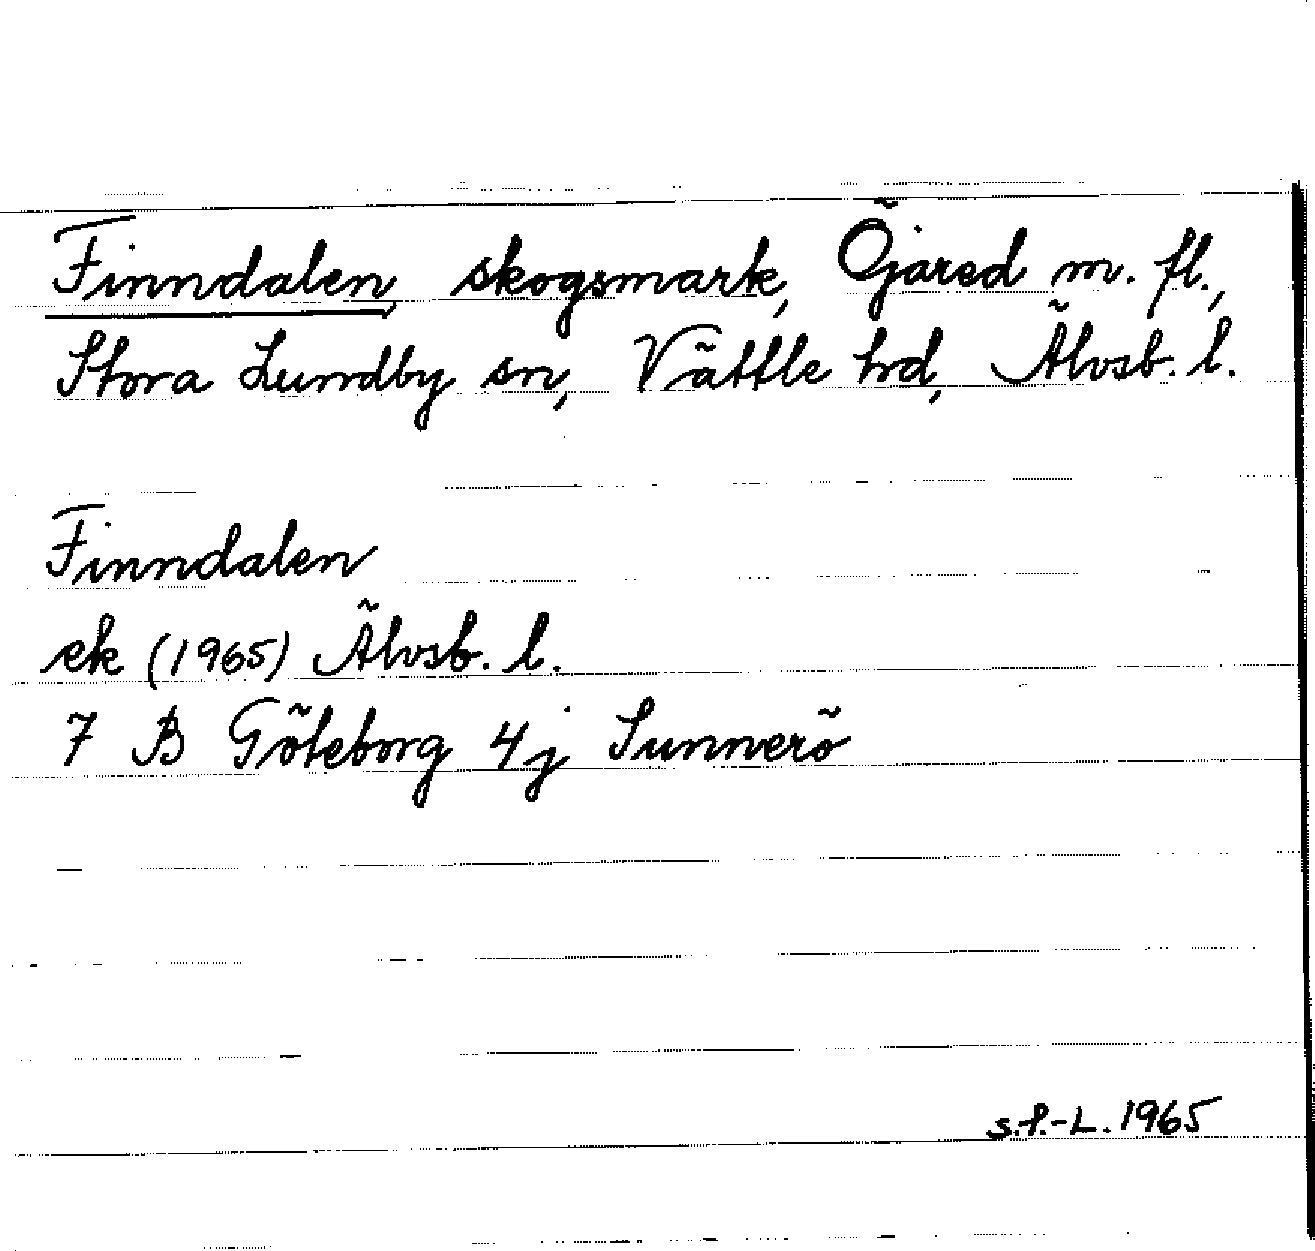 Finndalen, skogsmark, Öjared m. fl.,
Stora Lundby sn, Vättle hd, Älvsb. l.
Finndalen
ek (1965) Älvsb. l.
7 B Göteborg 4j Sunnerö
S.f.-L. 1965